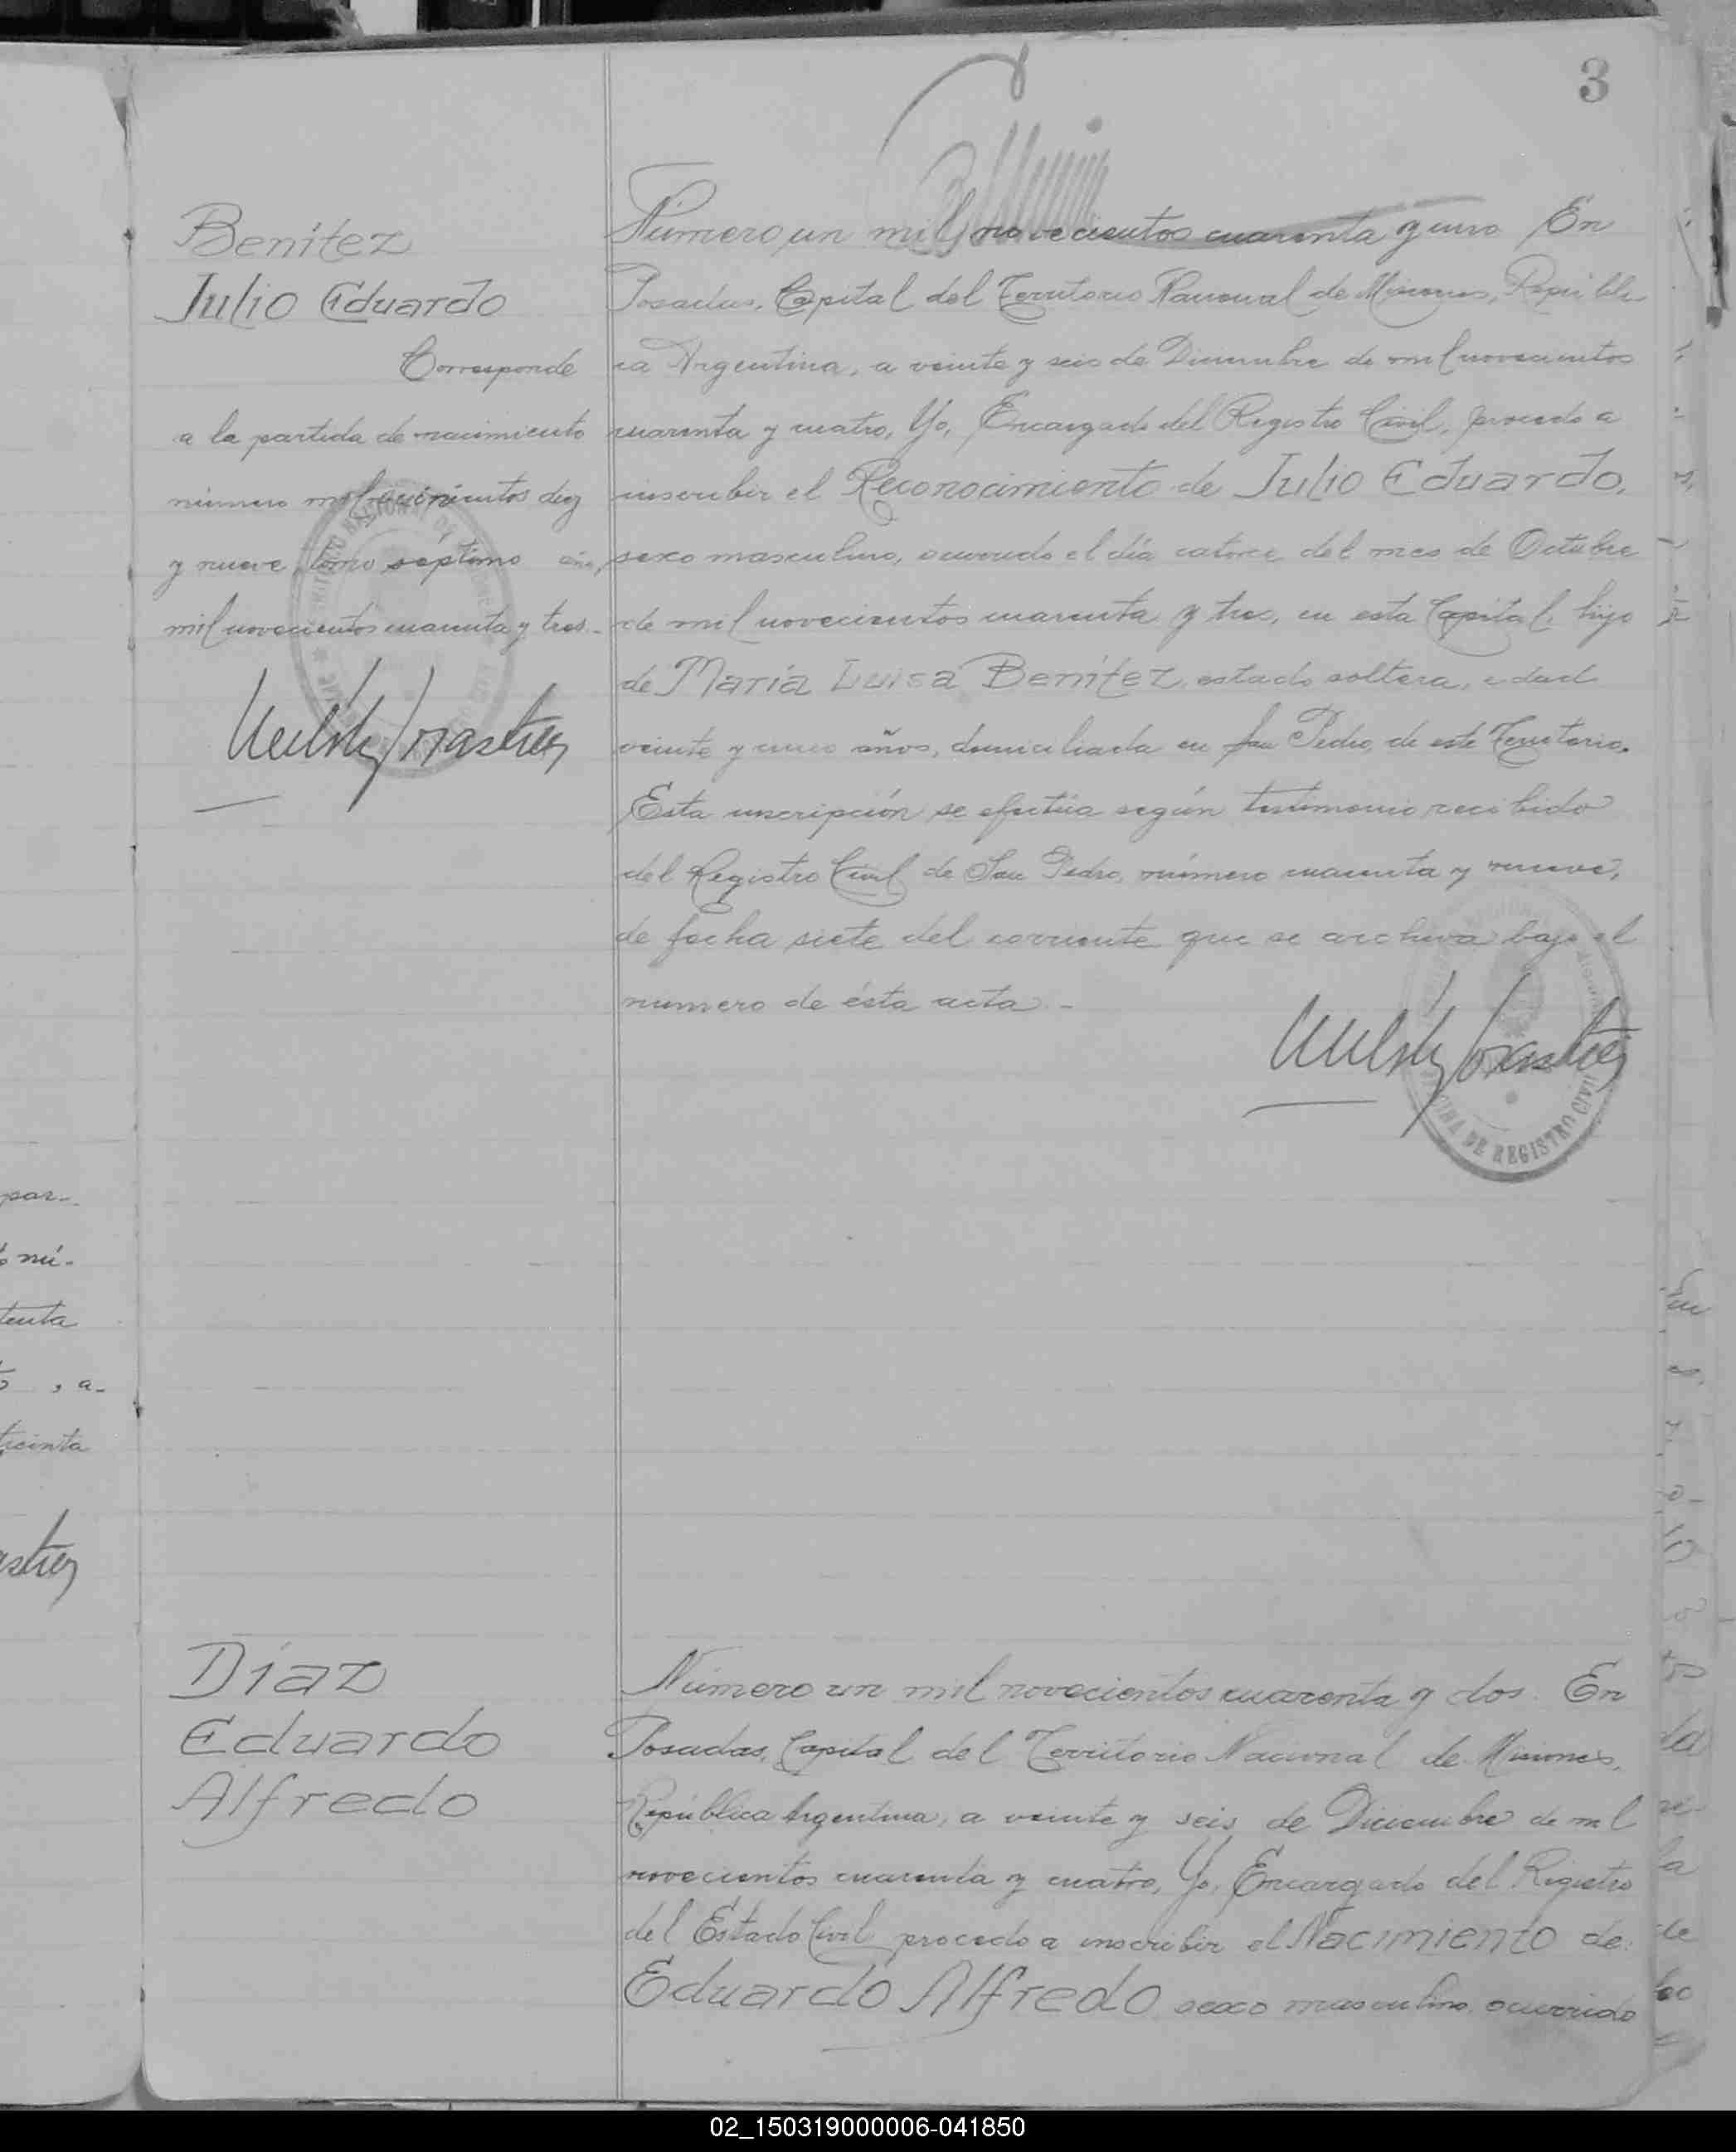 3
Benítez
Julio Eduardo
Corresponde
a la partida de nacimiento
número mil quinientos diez
y nueve, tomo séptimo año,
mil novecientos cuarenta y tres.-
Número un mil novecientos cuarenta y uno. En
Posadas, Capital del Territorio Nacional de Misiones, Repúbli-
ca Argentina, a veinte y seis de Diciembre de mil novecientos
cuarenta y cuatro, Yo, Encargado del Registro Civil, procedo a
inscribir el Reconocimiento de Julio Eduardo,
sexo masculino, ocurrido el día catorce del mes de Octubre
de mil novecientos cuarenta y tres, en esta Capital, hijo
de María Luisa Benítez, estado soltera, edad
veinte y años, domiciliada en San Pedro, de este Territorio.
Esta inscripción se efectúa según testimonio recibido
del Registro Civil de San Pedro, número cuarenta y nueve,
de fecha siete del corriente que se archiva bajo el
numero de ésta acta.-
OFICINA DE REGISTRO CIVIL
par-
nú-
tenta
, a-
treinta
Díaz
Eduardo
Alfredo
Número un mil novecientos cuarenta y dos. En
Posadas, Capital del Territorio Nacional de Misiones,
República Argentina, a veinte y seis de Diciembre de mil
novecientos cuarenta y cuatro, Yo, Encargado del Registro
del Estado Civil procedo a inscribir el Nacimiento de
Eduardo Alfredo, sexo masculino, ocurrido
02_150319000006-041850